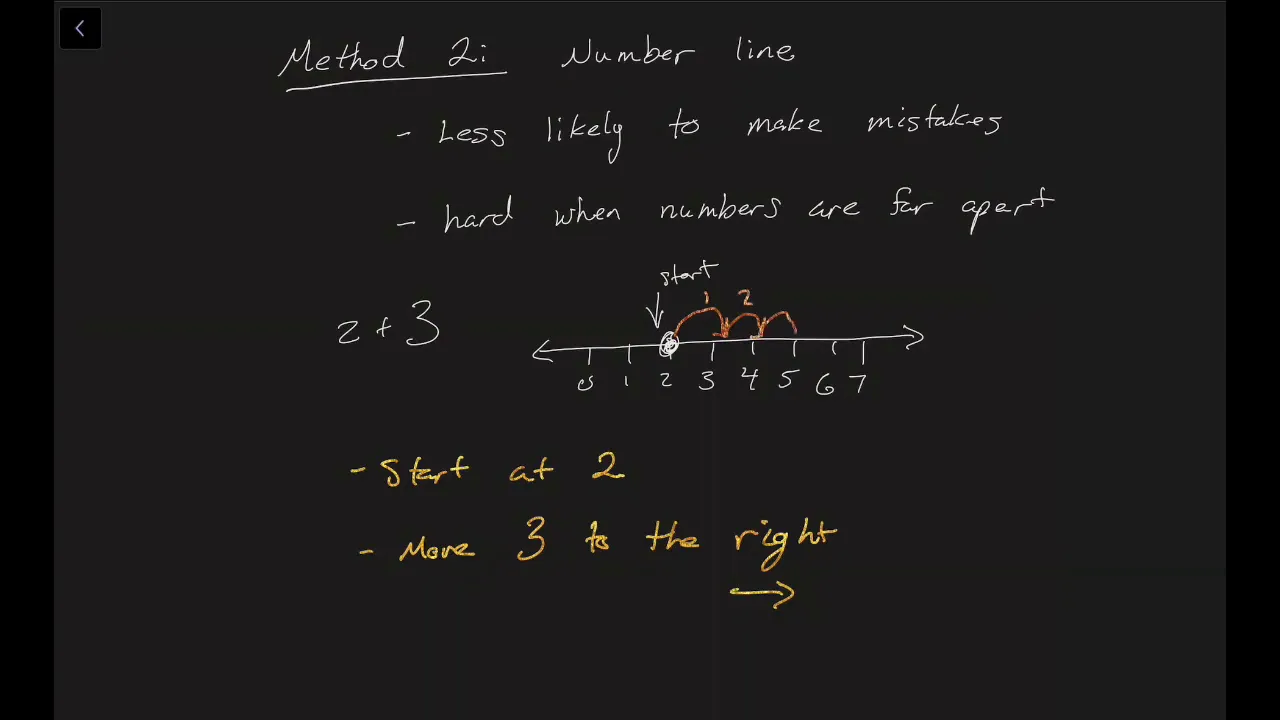 Method 2: Number line
- Less likely to make mistakes
- hard when numbers are far apart
start
1 2
2 + 3
0 1 2 3 4 5 6 7
- Start at 2
- Move 3 to the right